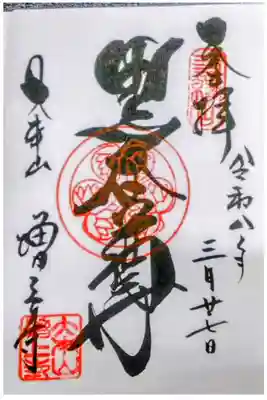 奉拝
令和八年
三月廿七日
黒本尊
大本山 増上寺